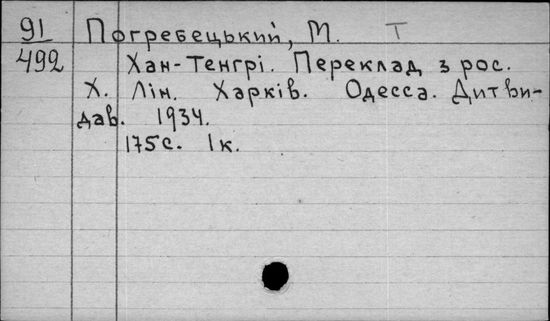 91 Погребецький, М. Т
492 Хан-Тенгрі. Переклад з рос.
Х. Лін. Харків. Одесса. Дитви-
дав. 1934.
175с. 1к.